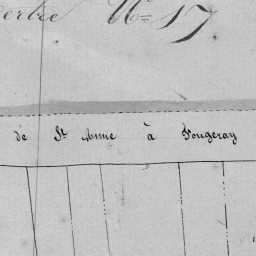 erbre N= 17
de St Anne à Fougeray